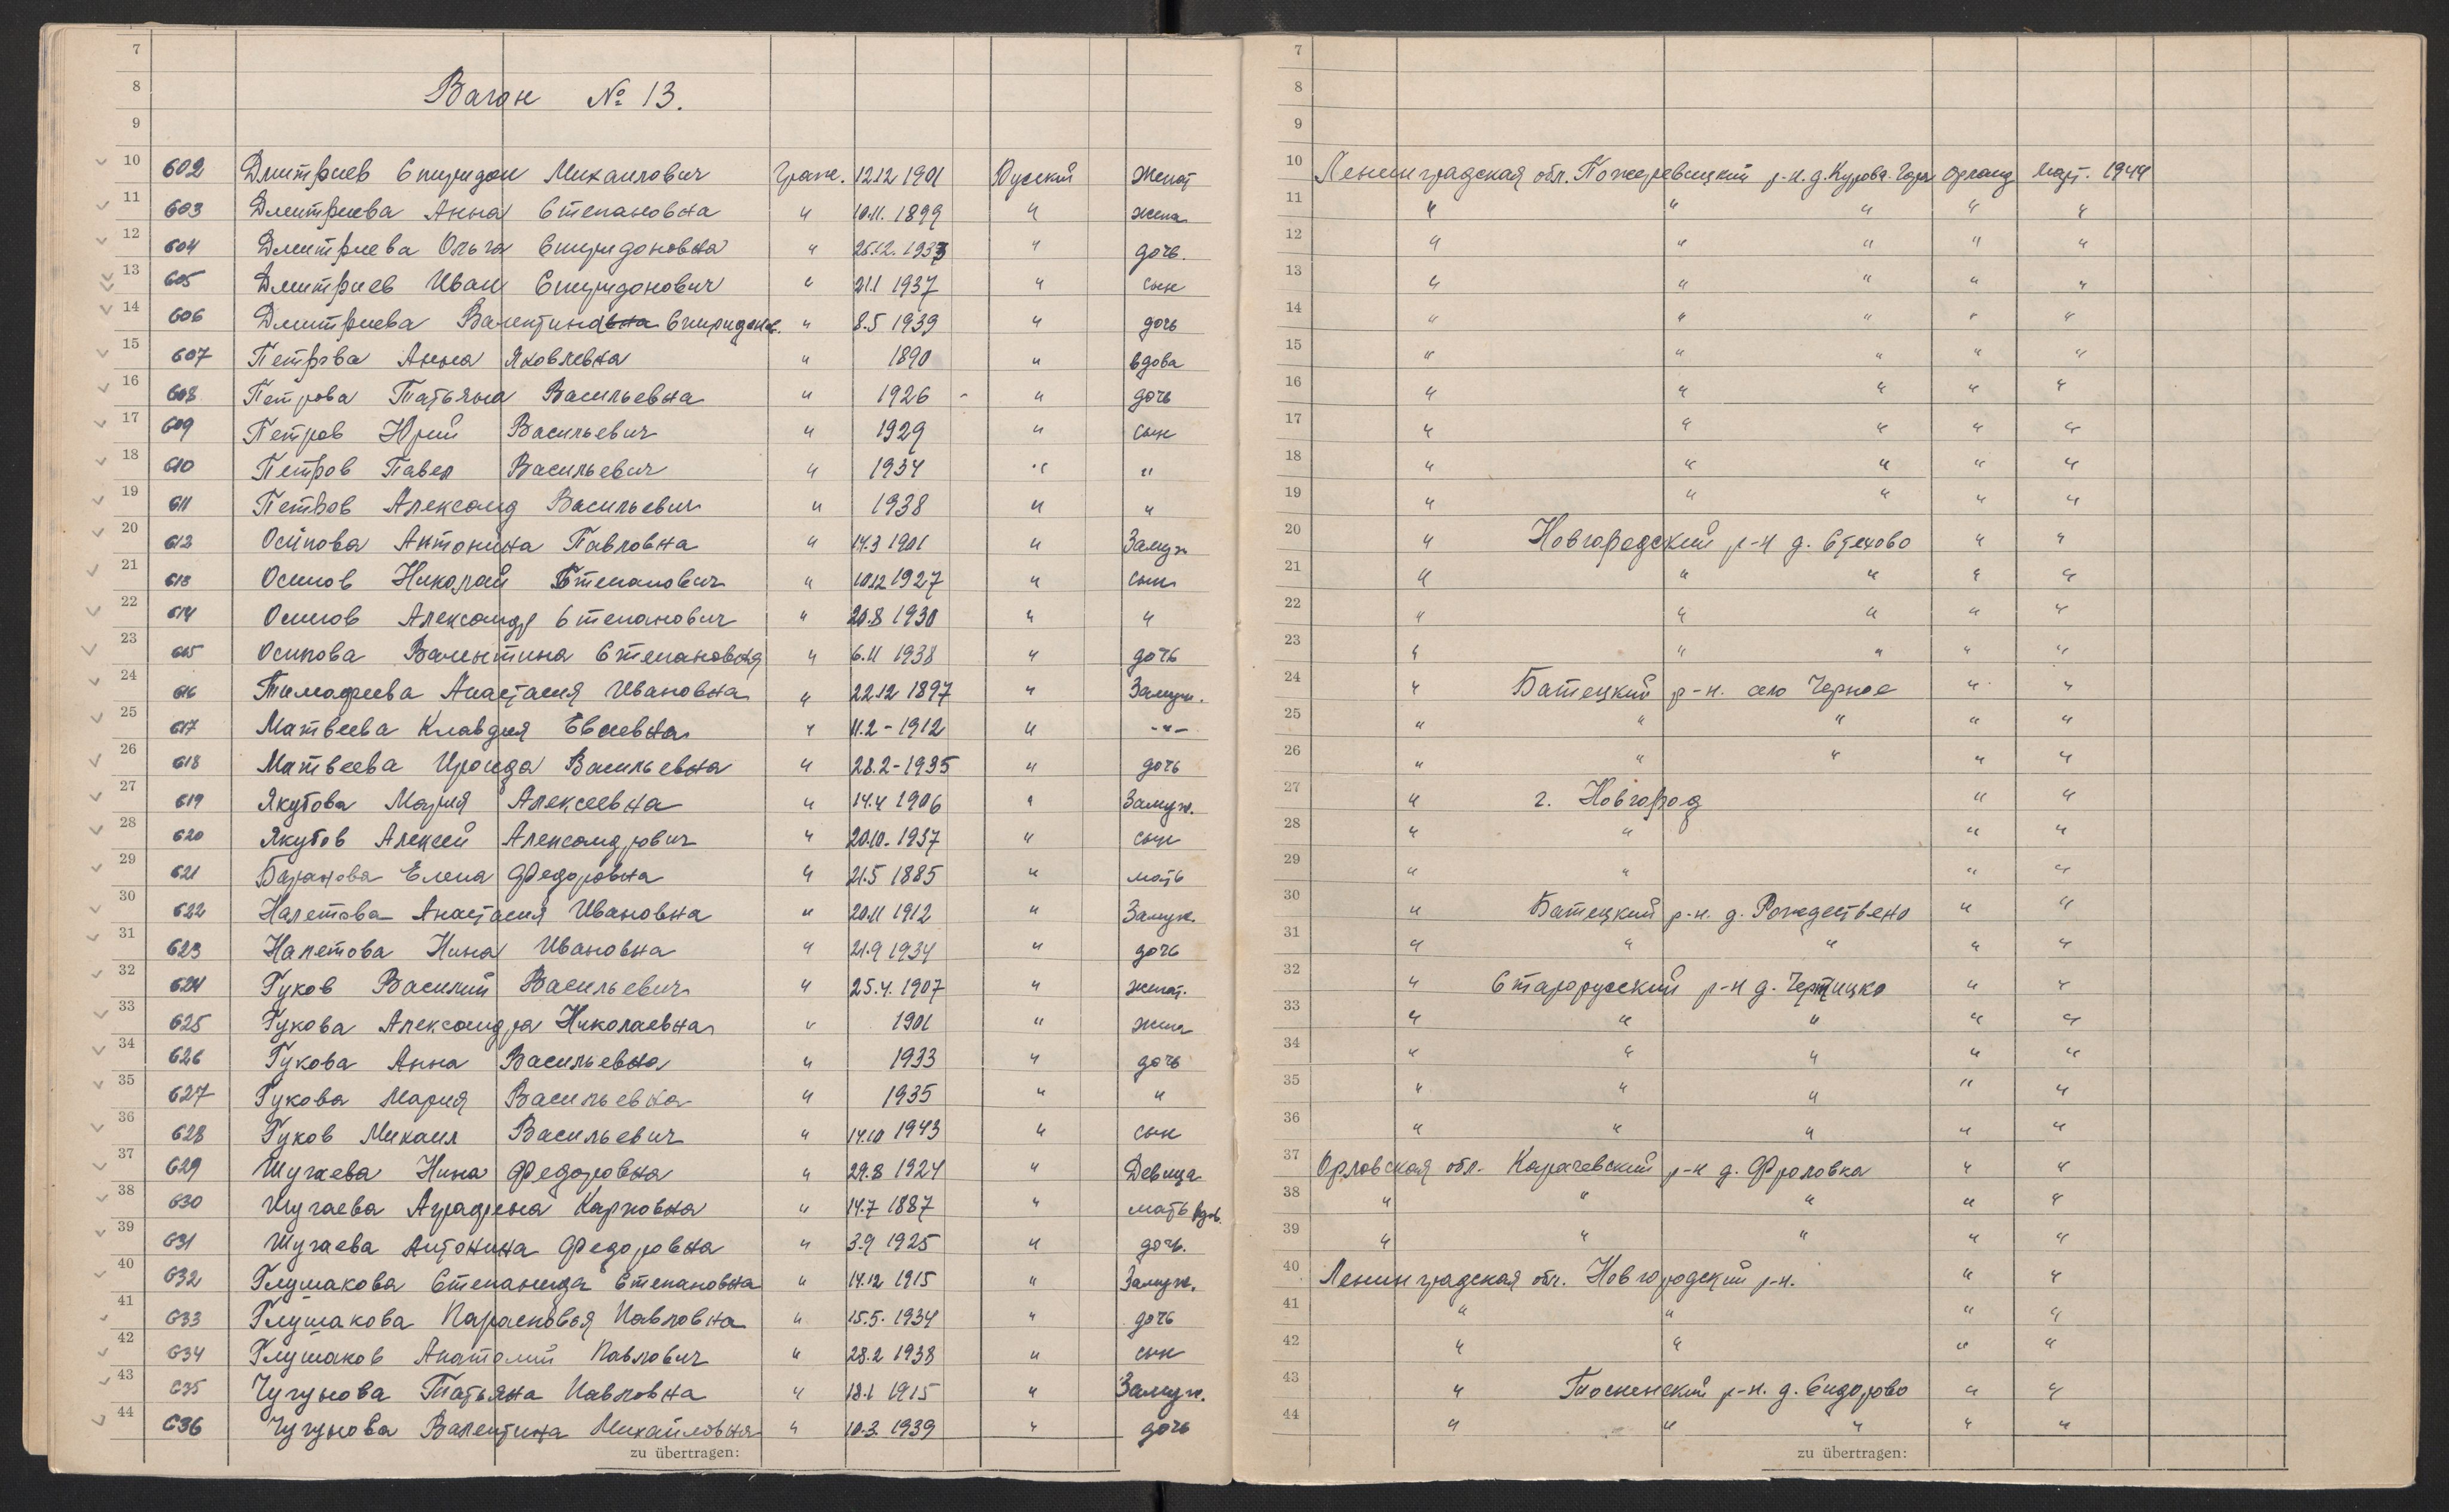 7 7
8 Вагон № 13. 8
9 9
10 602 Дмитриев Спиридон Михаилович Граж. 12.12 1901 Русский Женат 10 Ленинградская обл. Пожеревицкий р-н. д. Курова-Гора март. 1944
11 603 Дмитриева Анна Степановна " 10.11. 1899 " жена 11 " " " " "
12 604 Дмитриева Ольга Спиридоновна " 25.12. 1933 " дочь. 12 " " " " "
13 605 Дмитриев Иван Спиридонович " 21.1 1937 " сын 13 " " " " "
14 606 Дмитриева Валентиновна Спиридонов. " 8.5 1939 " дочь 14 " " " " "
15 607 Петрова Анна Яковлевна " 1890 " вдова 15 " " " " "
16 608 Петрова Татьяна Васильевна " 1926 - " дочь 16 " " " " "
17 609 Петров Юрий Васильевич " 1929 " сын 17 " " " " "
18 610 Петров Павел Васильевич " 1934 " " 18 " " " " "
19 611 Петров Александ Васильевич " 1938 " " 19 " " " " "
20 612 Осипова Антонина Павловна " 14.3 1901 " Замуж 20 " Новгородский р-н д. Стехово " "
21 613 Осипов Николай Степанович " 10.12 1927 " сын 21 " " " " "
22 614 Осипов Александр Степанович " 20.8 1930 " " 22 " " " " "
23 615 Осипова Валентина Степановна " 6.11 1938 " дочь 23 " " " " "
24 616 Тимофеева Анастасия Ивановна " 22.12 1897 " Замуж. 24 " Батецкий р-н. село Черное " "
25 617 Матвеева Клавдия Евсеевна " 11.2-1912 " -"- 25 " " " " "
26 618 Матвеева Ироида Васильевна " 28.2-1935 " дочь 26 " " " " "
27 619 Якутова Мария Алексеевна " 14.4 1906 " Замуж. 27 " г. Новгород " "
28 620 Якутов Алексей Александрович " 20.10. 1937 " сын 28 " " " "
29 621 Баранова Елена Федоровна " 21.5 1885 " мать 29 " " " "
30 622 Налетова Анастасия Ивановна " 20.11 1912 " Замуж. 30 " Батецкий р-н. д. Рождествено " "
31 623 Налетова Нина Ивановна " 21.9 1934 " дочь 31 " " " " "
32 624 Гуков Василий Васильевич " 25.4. 1907 " женат. 32 " Старорусский р-н д. Чертицко " "
33 625 Гукова Александра Николаевна " 1901 " жена 33 " " " " "
34 626 Гукова Анна Васильевна " 1933 " дочь 34 " " " " "
35 627 Гукова Мария Васильевна " 1935 " " 35 " " " " "
36 628 Гуков Михаил Васильевич " 14.10 1943 " сын 36 " " " " "
37 629 Шугаева Нина Федоровна " 29.8 1924 " Девица 37 Орловская обл. Карачевский р-н д. Фроловка " "
38 630 Шугаева Аграфена Карповна " 14.7 1887 " мать вдов. 38 " " " " "
39 631 Шугаева Антонина Федоровна " 3.9 1925 " дочь. 39 " " " " "
40 632 Глушакова Степанида Степановна " 14.12 1915 " Замуж. 40 Ленинградская обл. Новгородский р-н. " "
41 633 Глушакова Парасковья Павловна " 15.5. 1934 " дочь 41 " " " "
42 634 Глушаков Анатолий Павлович " 28.2 1938 " сын 42 " " " "
43 635 Чугунова Татьяна Павловна " 18.1 1915 " Замуж. 43 " Тосненский р-н. д. Сидорово " "
44 636 Чугунова Валентина Михайловна " 10.3. 1939 " дочь 44 " " " " "
zu übertragen: zu übertragen: